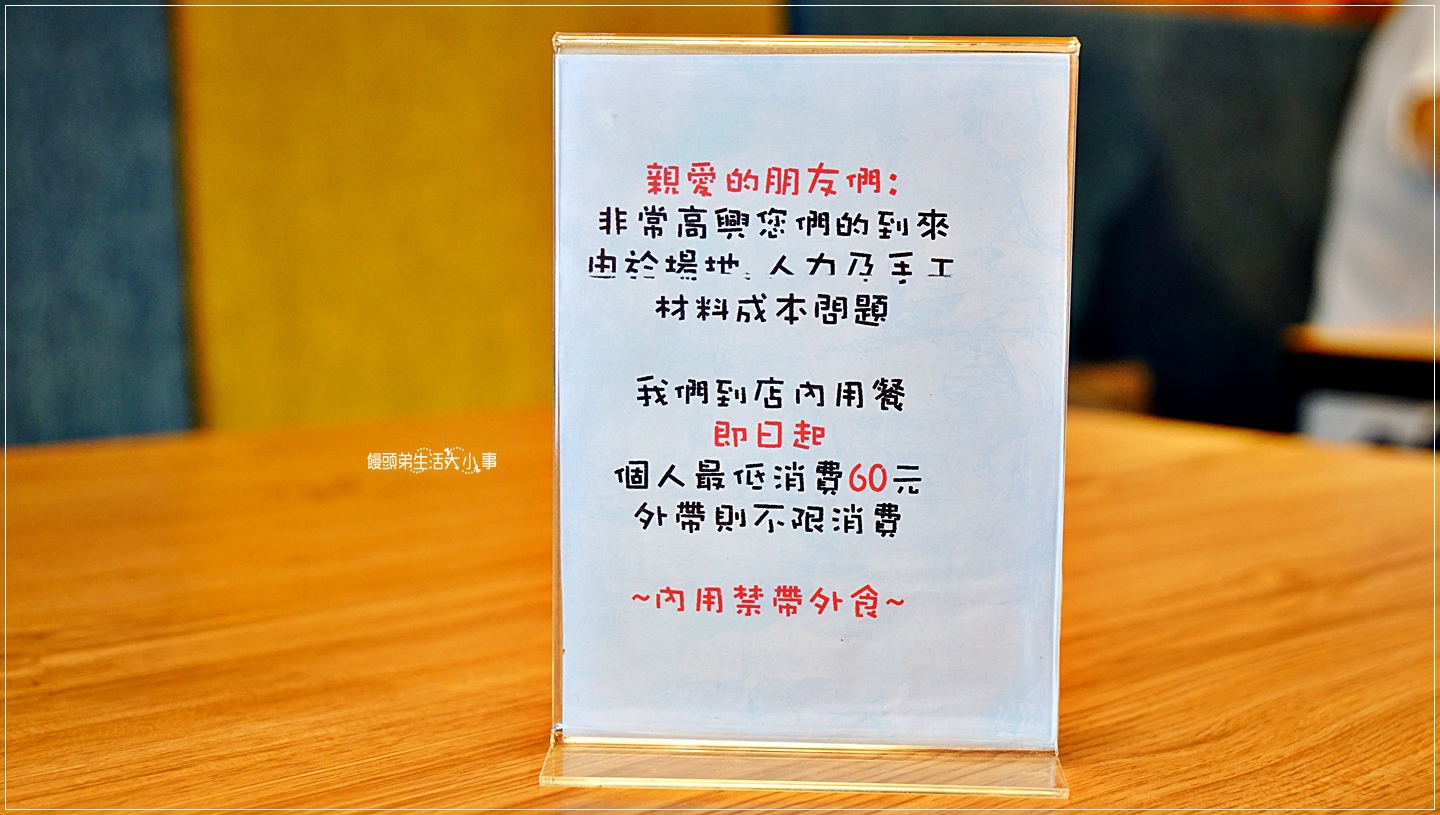 親愛的朋友們：
非常高興您們的到來
由於場地、人力及手工
材料成本問題
我們到店內用餐
即日起
個人最低消費60元
外帶則不限消費
~內用禁帶外食~
饅頭弟生活大小事